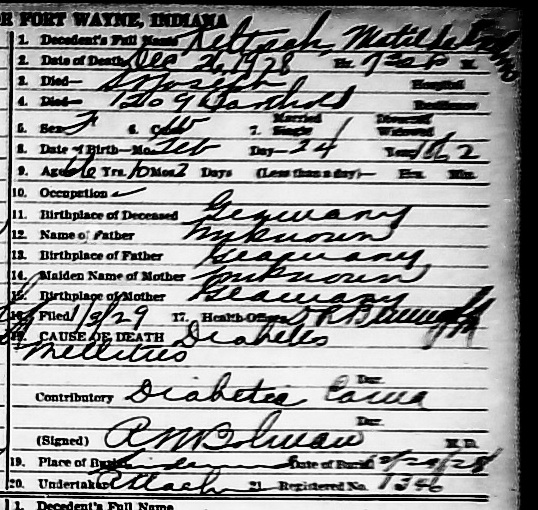 OR FORT WAYNE, INDIANA
1. Decedent's Full Name Matilda
2. Date of Death Dec 26, 1928 Hr. 7 30 P. M.
3. Died— St Joseph Hospital
4. Died— 1209 Residence
5. Sex F 6. Color W 7. Married Single Divorced Widowed
8. Date of Birth—Mo. Feb Day—24 Year 1862
9. Age 66 Yrs. 10 Mos. 2 Days (Less than a day)— Hrs. Min.
10. Occupation
11. Birthplace of Deceased Germany
12. Name of Father Unknown
13. Birthplace of Father Germany
14. Maiden Name of Mother Unknown
15. Birthplace of Mother Germany
16. Filed 1/3/29 17. Health Officer
18. CAUSE OF DEATH Diabetes
Mellitus
Dur.
Contributory Diabetic Coma
Dur.
(Signed) M. D.
19. Place of Burial Lindenwood Date of Burial 12/29/28
20. Undertaker 21 Registered No. 1346
1. Decedent's Full Name